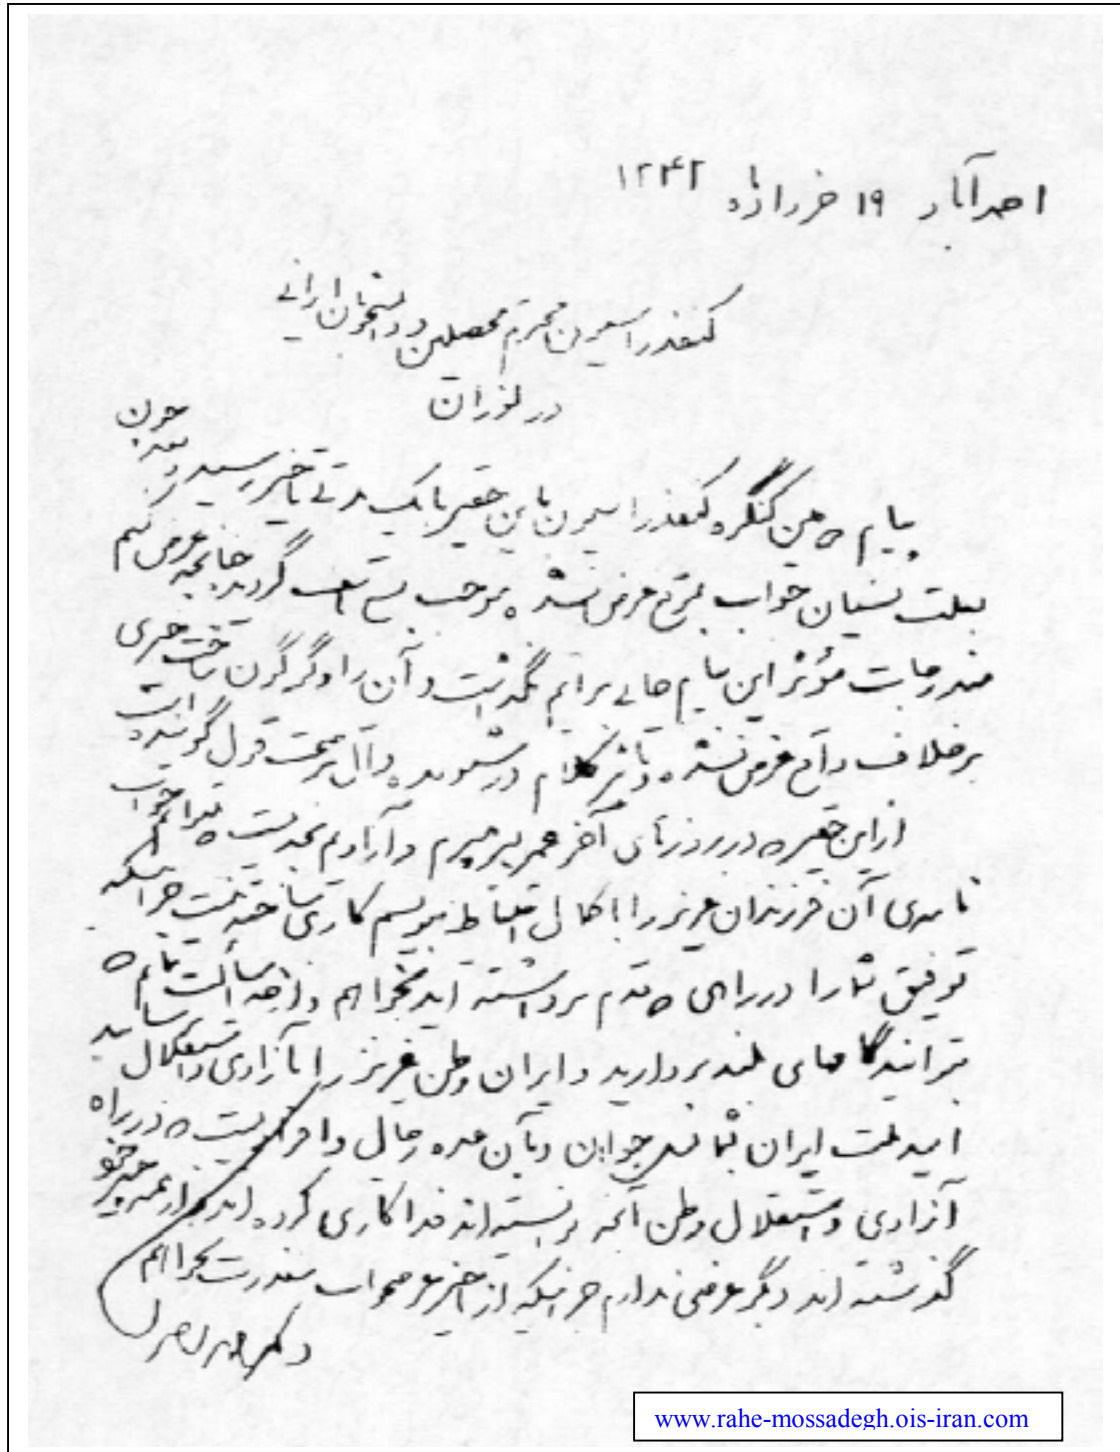 احمدآباد ۱۹ خردادماه ۱۳۴۲
کنفدراسیون محترم محصلین و دانشجویان ایرانی
در لوزان
پیام ۵ مین کنگره کنفدراسیون باین حقیر با یک مدتی تأخیر رسید و چون بعد
بعلت نسیان جواب بموقع عرض نشده موجب بسی تأسف گردید چنانچه عرض کنم
مندرجات مؤثر این پیام حالی برایم نگذاشت و آن را دگرگون ساخت چیزی
برخلاف واقع عرض نشده و تأثیر کلام در شنونده دال بر صحت قول گوینده است
از این حقیر که در روزهای آخر عمر بسر میبرم و آزاد هم نیست که بتوانم جواب
نامه‌ی آن فرزندان عزیز را با کمال احتیاط بنویسم کاری ساخته نیست جز اینکه
توفیق شما را در راهی که قدم برداشته‌اید بخواهم و از خدا مسألت نمایم که
بتوانید گامهای بلند بردارید و ایران وطن عزیز را بآزادی و استقلال برسانید
امید ملت ایران بشما نسل جوان و بآن عده رجال و افرادیست که در راه
آزادی و استقلال وطن آنچه توانسته‌اند فداکاری کرده‌اند و از همه چیز خود
گذشته‌اند دیگر عرضی ندارم جز اینکه از تأخیر عرض جواب معذرت بخواهم
دکتر محمد مصدق
www.rahe-mossadegh.ois-iran.com